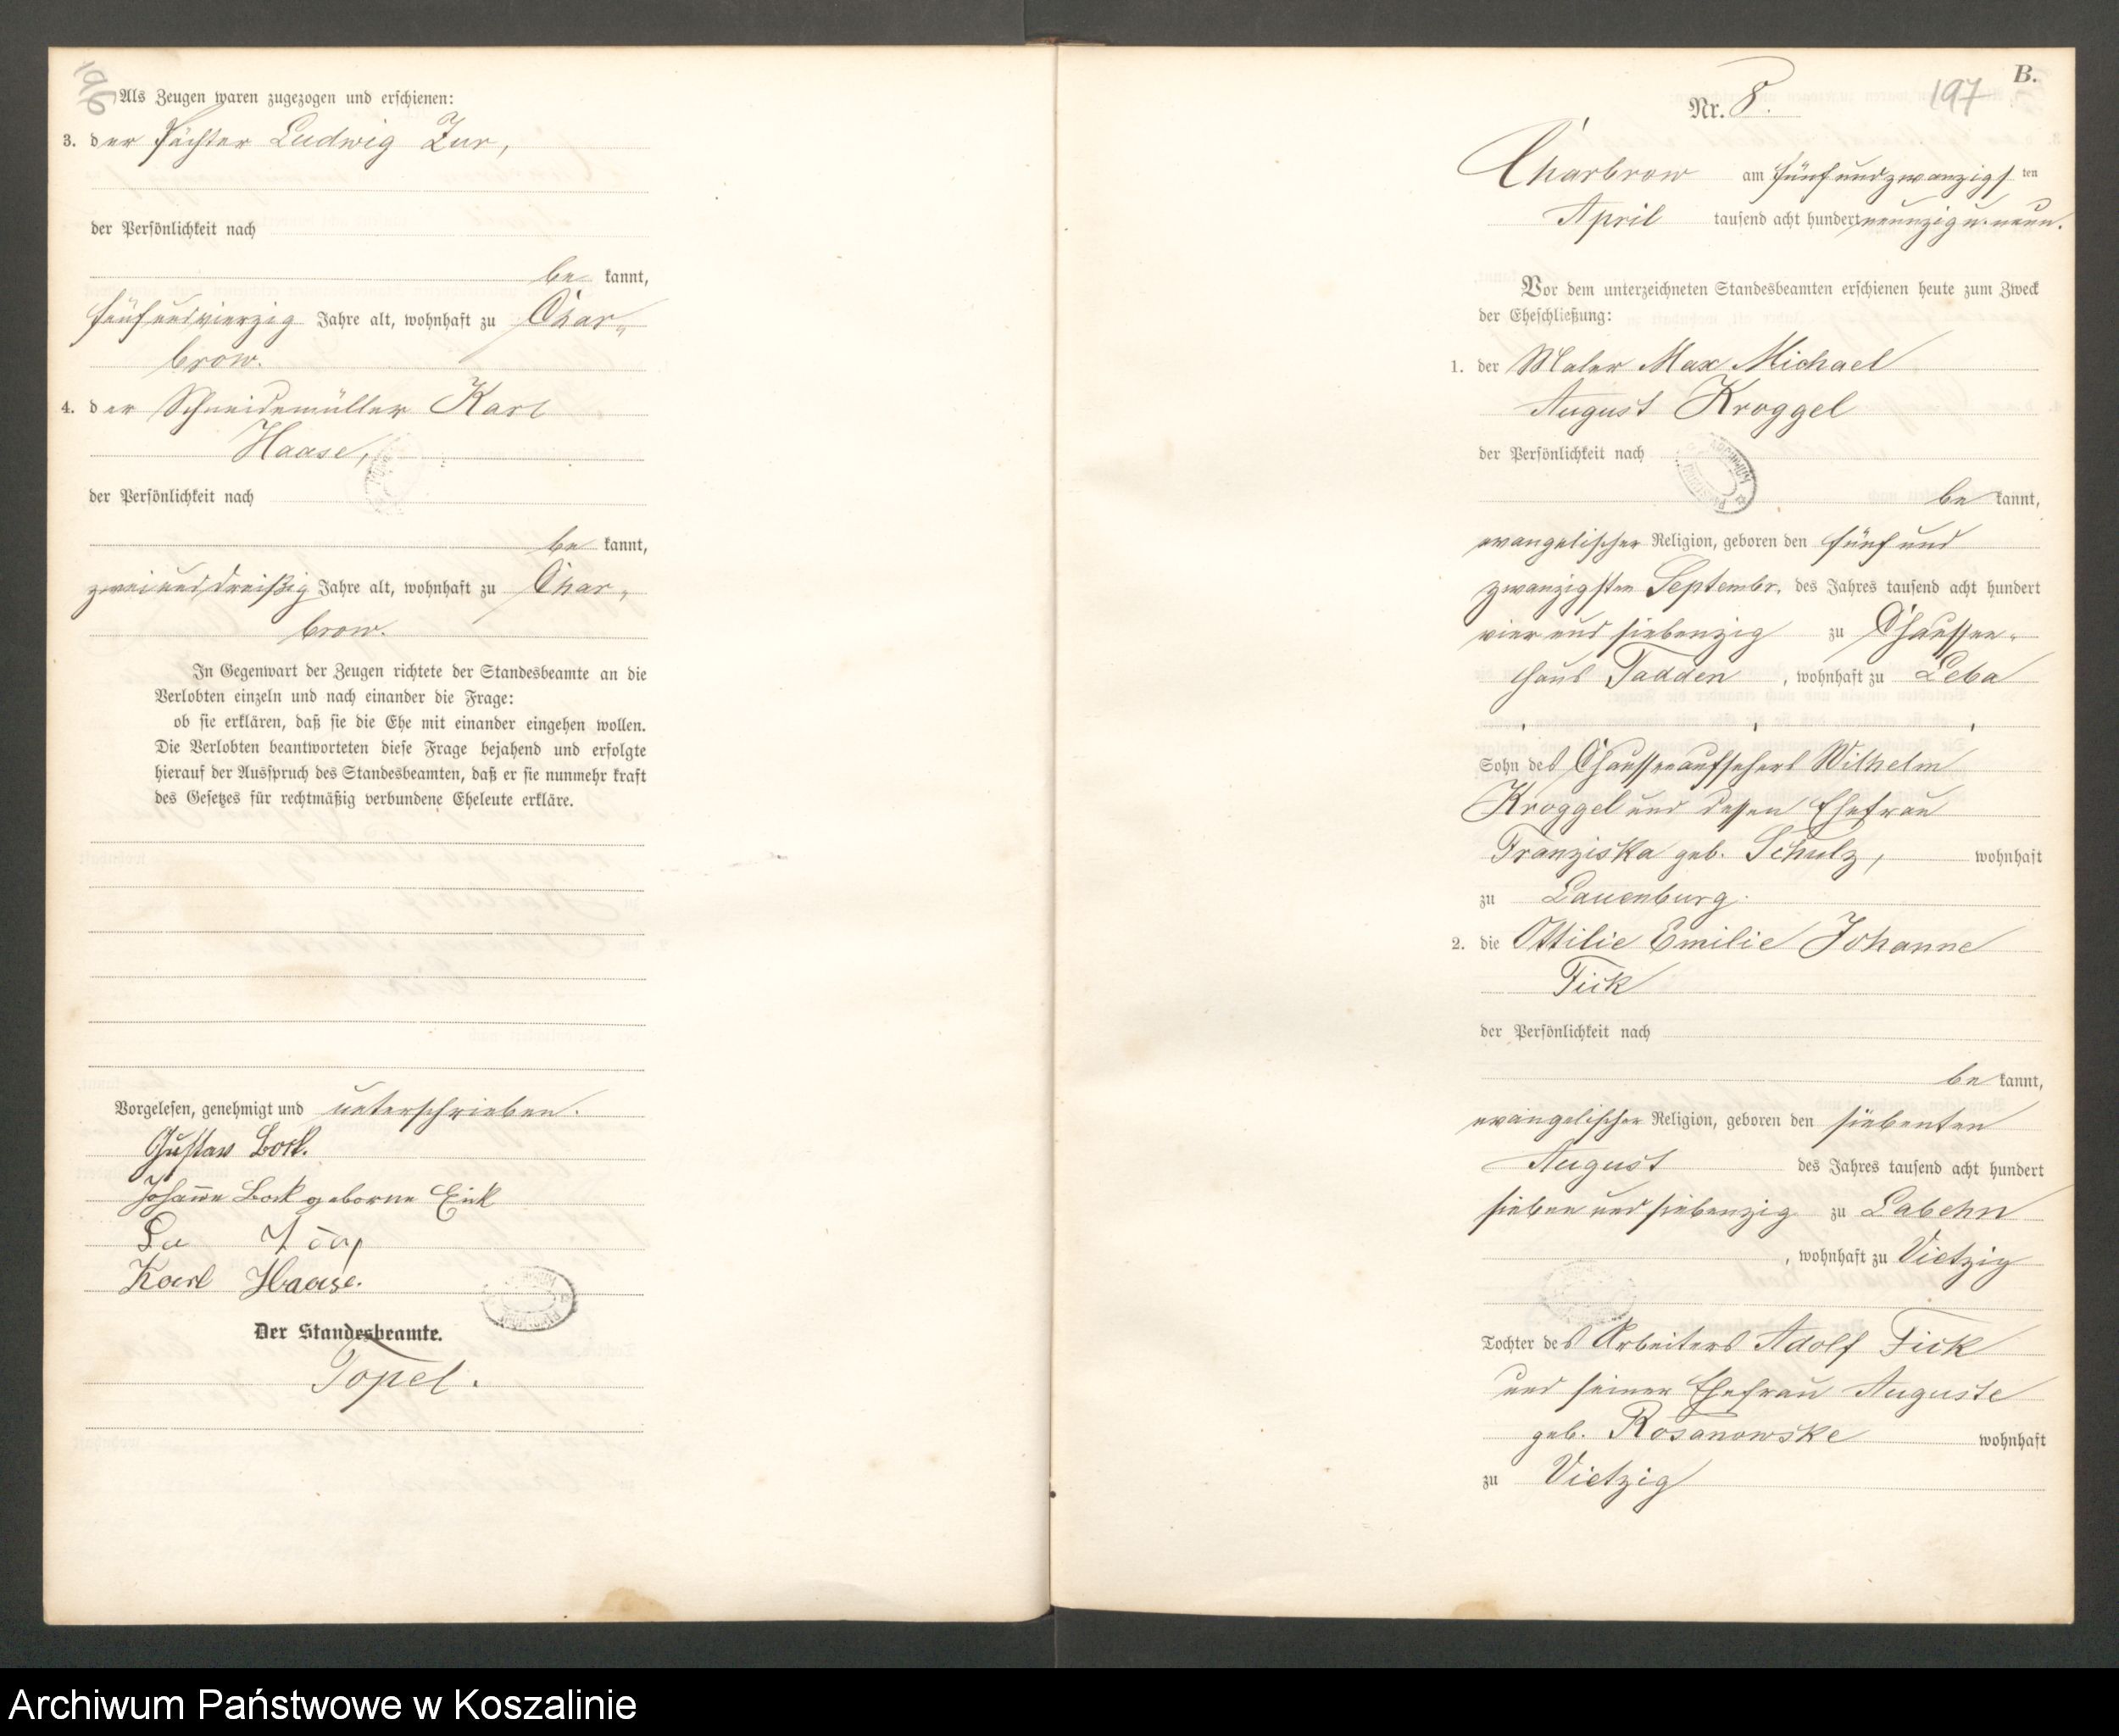 196
Als Zeugen waren zugezogen und erschienen:
3. der Pächter Ludwig Zur,
der Persönlichkeit nach
be kannt,
fünfundvierzig Jahre alt, wohnhaft zu Char-
brow.
4. der Schneidemüller Karl
Haase,
der Persönlichkeit nach
be kannt,
zweiunddreißig Jahre alt, wohnhaft zu Char-
brow.
In Gegenwart der Zeugen richtete der Standesbeamte an die
Verlobten einzeln und nach einander die Frage:
ob sie erklären, daß sie die Ehe mit einander eingehen wollen.
Die Verlobten beantworteten diese Frage bejahend und erfolgte
hierauf der Ausspruch des Standesbeamten, daß er sie nunmehr kraft
des Gesetzes für rechtmäßig verbundene Eheleute erkläre.
Vorgelesen, genehmigt und unterschrieben.
Gustav Bock.
Johanne Bock geborne Eick
Karl Haase.
Der Standesbeamte.
Topel.
B.
197
Nr. 8.
Charbrow am fünfundzwanzigs ten
April tausend acht hundert neunzig u. neun.
Vor dem unterzeichneten Standesbeamten erschienen heute zum Zweck
der Eheschließung:
1. der Maler Max Michael
August Kroggel
der Persönlichkeit nach
be kannt,
evangelischer Religion, geboren den fünf und
zwanzigsten Septembr. des Jahres tausend acht hundert
vier und siebenzig zu Chaussee-
haus Tadden, wohnhaft zu Leba
Sohn des Chausseeaufsehers Wilhelm
Kroggel und dessen Ehefrau
Franziska geb. Schulz, wohnhaft
zu Lauenburg.
2. die Ottilie Emilie Johanne
Fick
der Persönlichkeit nach
be kannt,
evangelischer Religion, geboren den siebenten
August des Jahres tausend acht hundert
sieben und siebenzig zu Labehn
, wohnhaft zu Vietzig
Tochter des Arbeiters Adolf Fick
und seiner Ehefrau Auguste
geb. Rosanowske wohnhaft
zu Vietzig
Archiwum Państwowe w Koszalinie